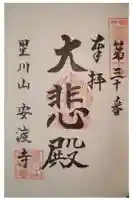 第三十番
奉拝
大悲殿
里川山 安波寺